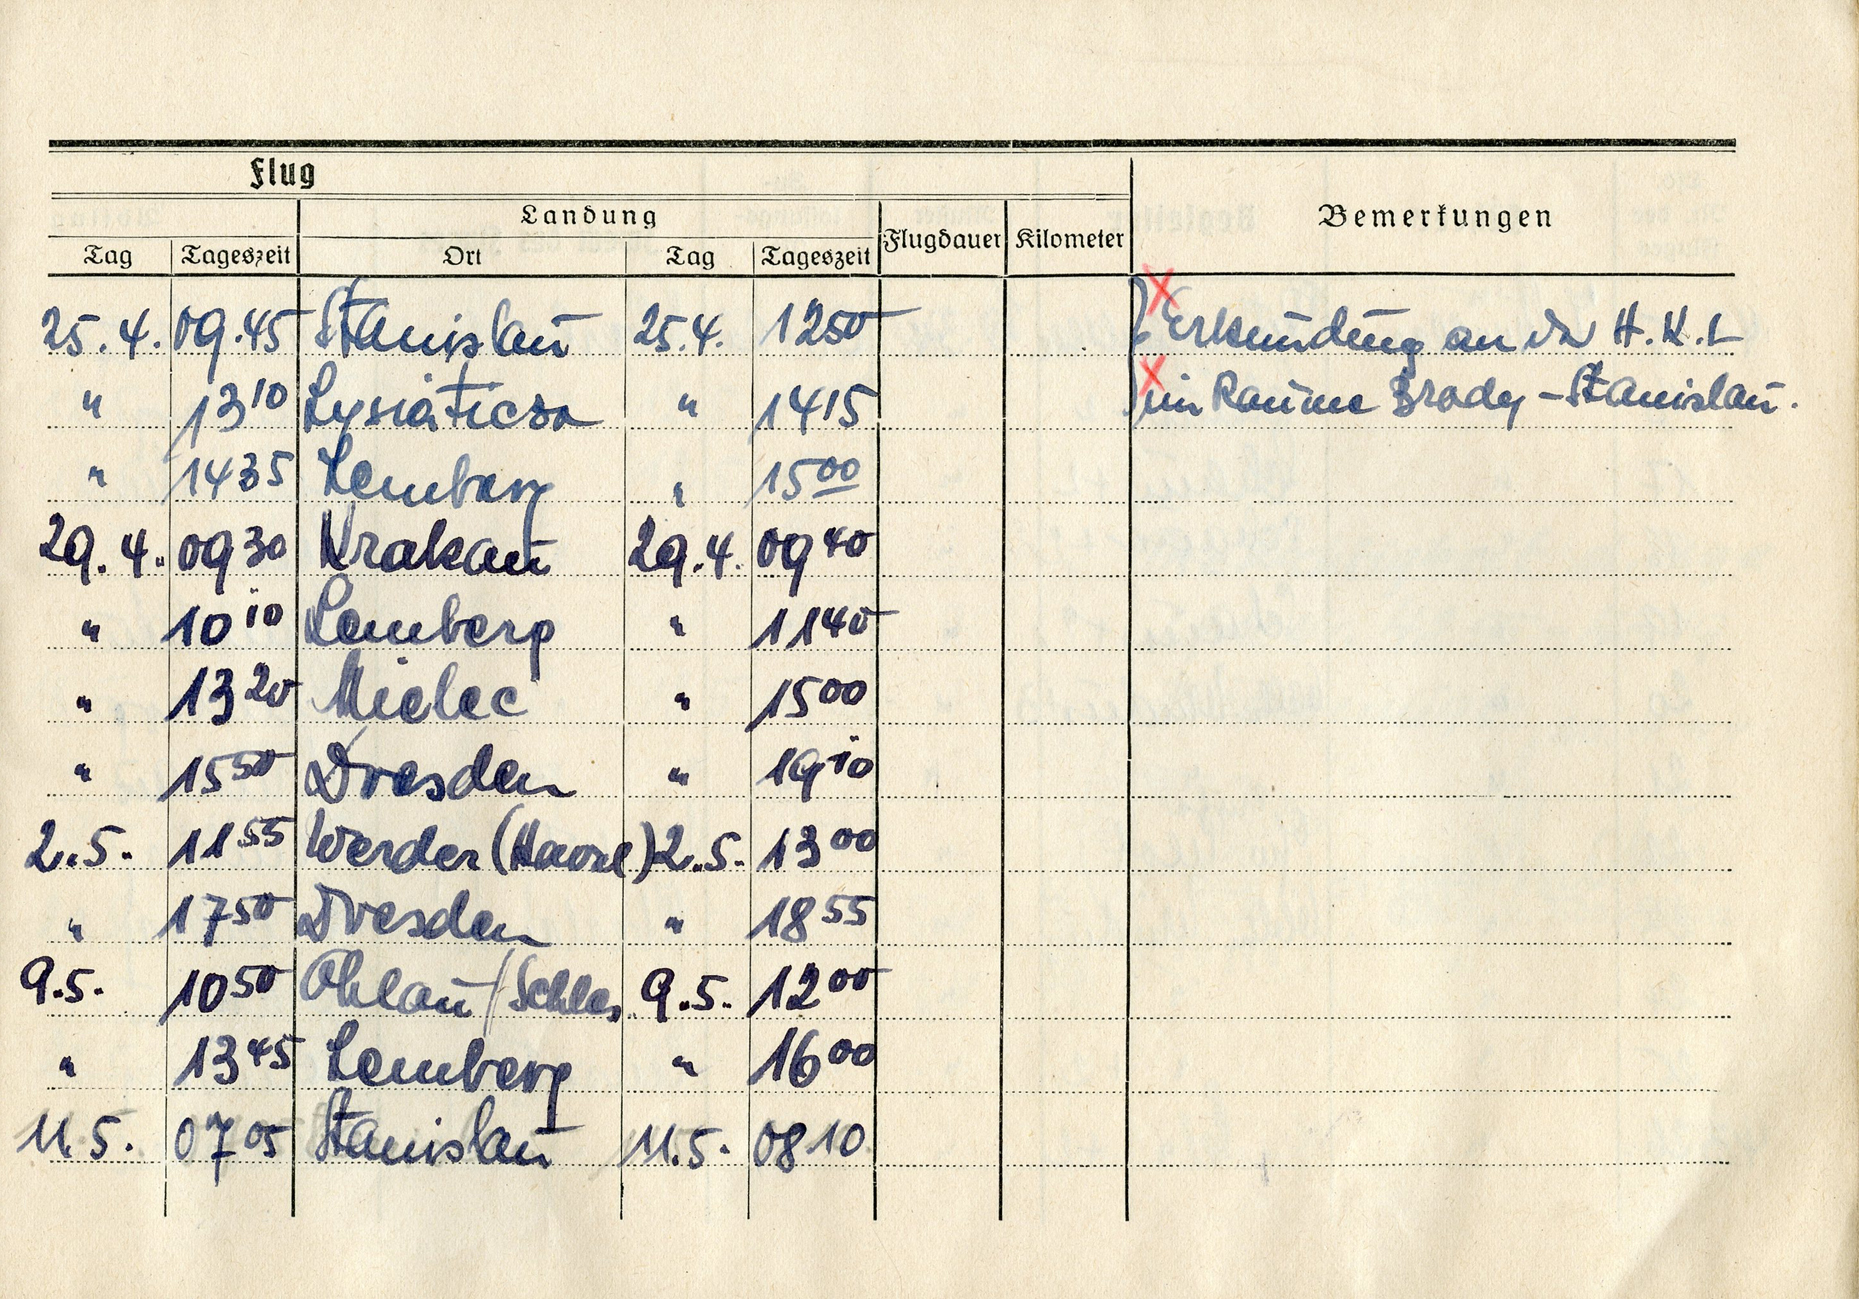 Flug
Landung
Flugdauer Kilometer Bemerkungen
Tag Tageszeit Ort Tag Tageszeit
25.4. 09.45 Stanislau 25.4. 1250 Erkundung an der H.K.L
" 1310 " 1415 im Raume Brody - Stanislau.
" 1435 Lemberg " 1500
29.4. 0930 Krakau 29.4. 0940
" 1010 Lemberg " 1140
" 1320 Mielec " 1500
" 1550 Dresden " 1910
2.5. 1155 Werder (Havel) 2.5. 1300
" 1750 Dresden " 1855
9.5. 1050 Ohlau/Schles. 9.5. 1200
" 1345 Lemberg " 1600
11.5. 0705 Stanislau 11.5. 0810